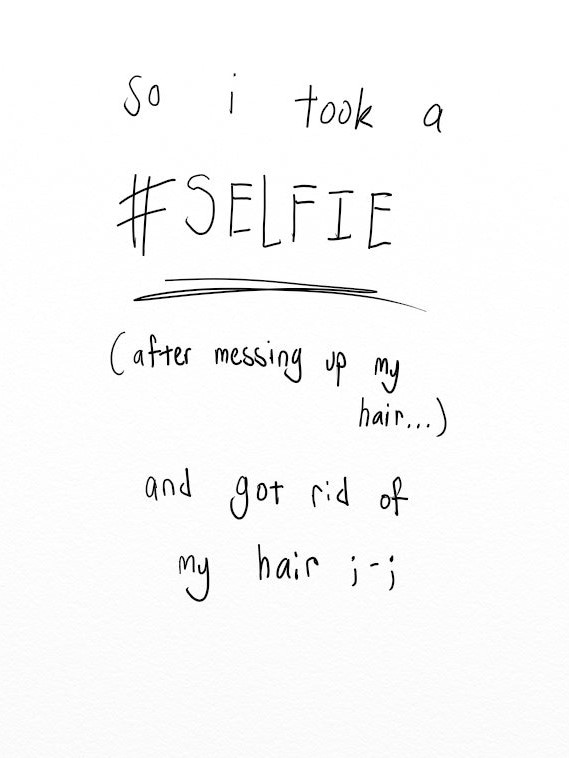 so i took a
#SELFIE
(after messing up my
hair...)
and got rid of
my hair ;-;